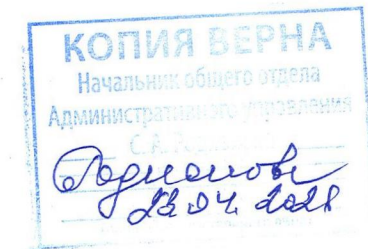 КОПИЯ ВЕРНА
Начальник общего отдела
Административного управления
С. А.
Родионова
04.